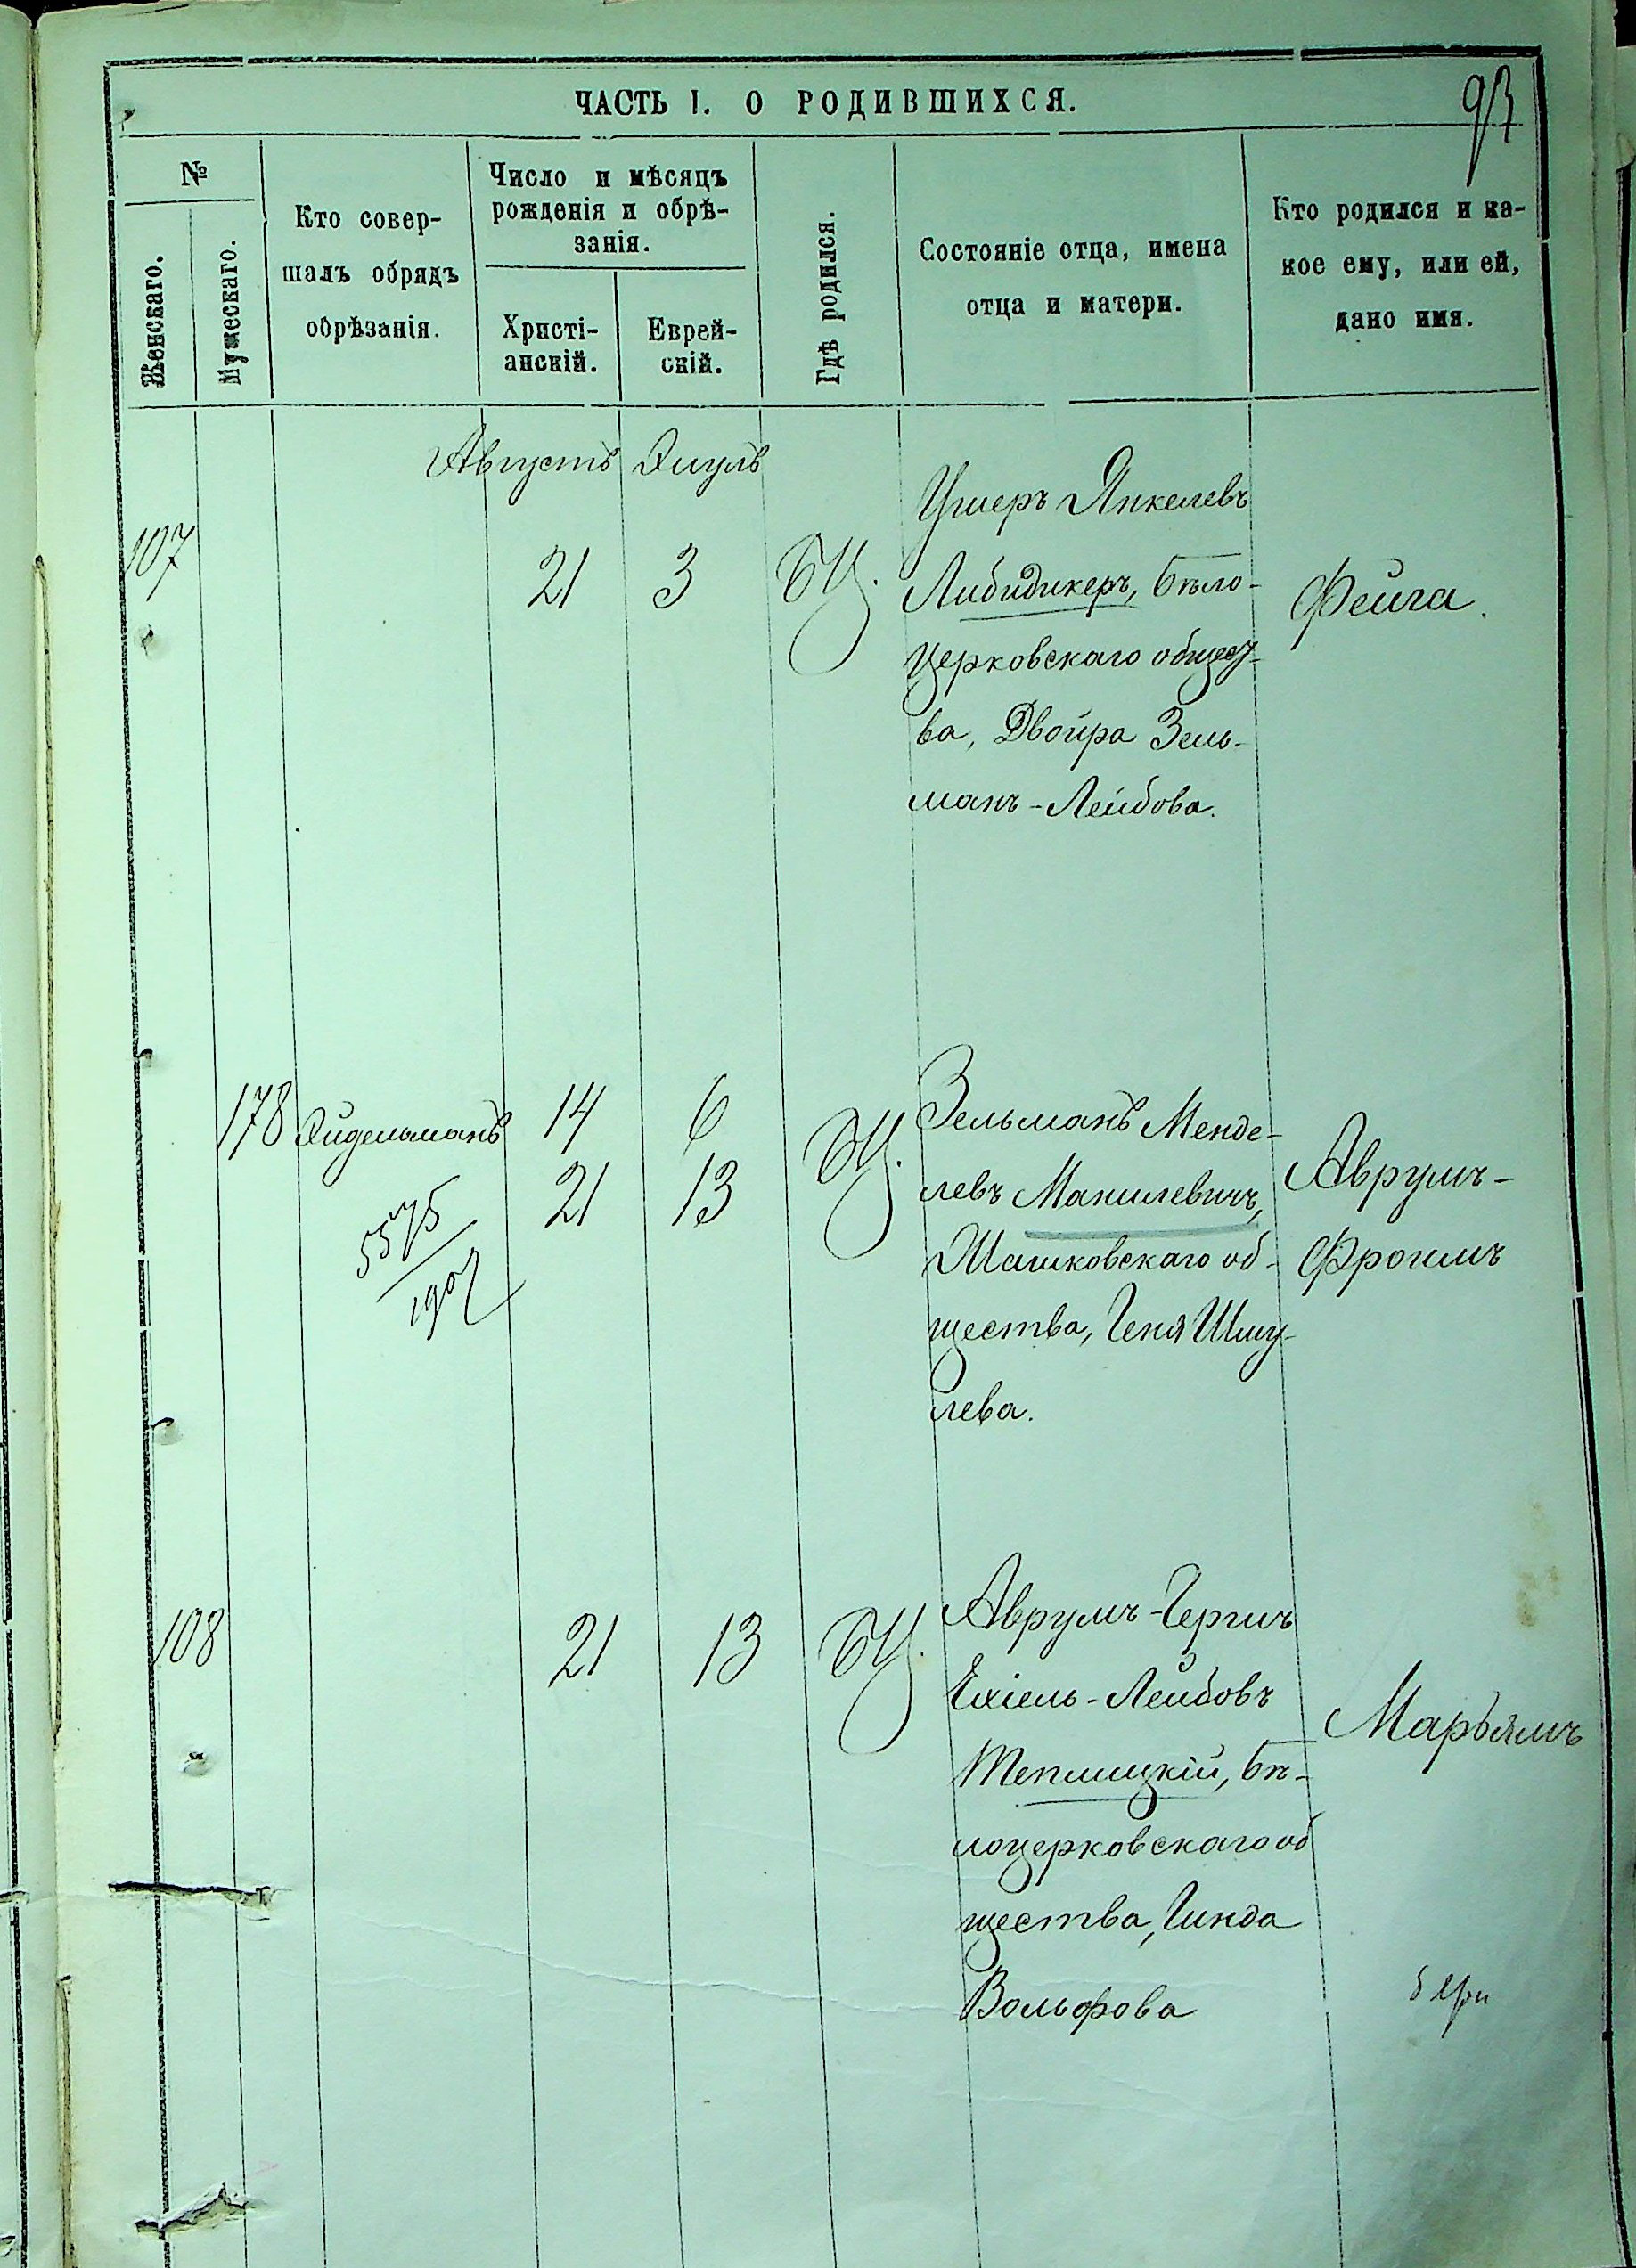 ЧАСТЬ I. О РОДИВШИХСЯ.
93
№
Женскаго.
Мужескаго.
Кто совер-
шалъ обрядъ
обрѣзанія.
Число и мѣсяцъ
рожденія и обрѣ-
занія.
Христі-
анскій.
Еврей-
скій.
Гдѣ родился.
Состояніе отца, имена
отца и матери.
Кто родился и ка-
кое ему, или ей,
дано имя.
Августъ Элулъ
107 21 3 БЦ.
Ушеръ Янкелевъ
Либидикеръ, Бѣло-
церковскаго общест-
ва, Двойра Зель-
манъ-Лейбова.
Фейга.
178 Эйдельманъ 14 6 БЦ.
21 13
5575
1907
Зельманъ Менде-
левъ Манилевичъ,
Шамковскаго об-
щества, Геня Шму-
лева.
Аврумъ-
Фроимъ
108 21 13 БЦ.
Аврумъ-Гершъ
Ехіель-Лейбовъ
Теплицкій, Бѣ-
лоцерковскаго об
щества, Гинда
Вольфова
Марьямъ